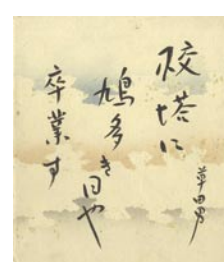 校塔に
鳩多き日や
卒業す
草田男